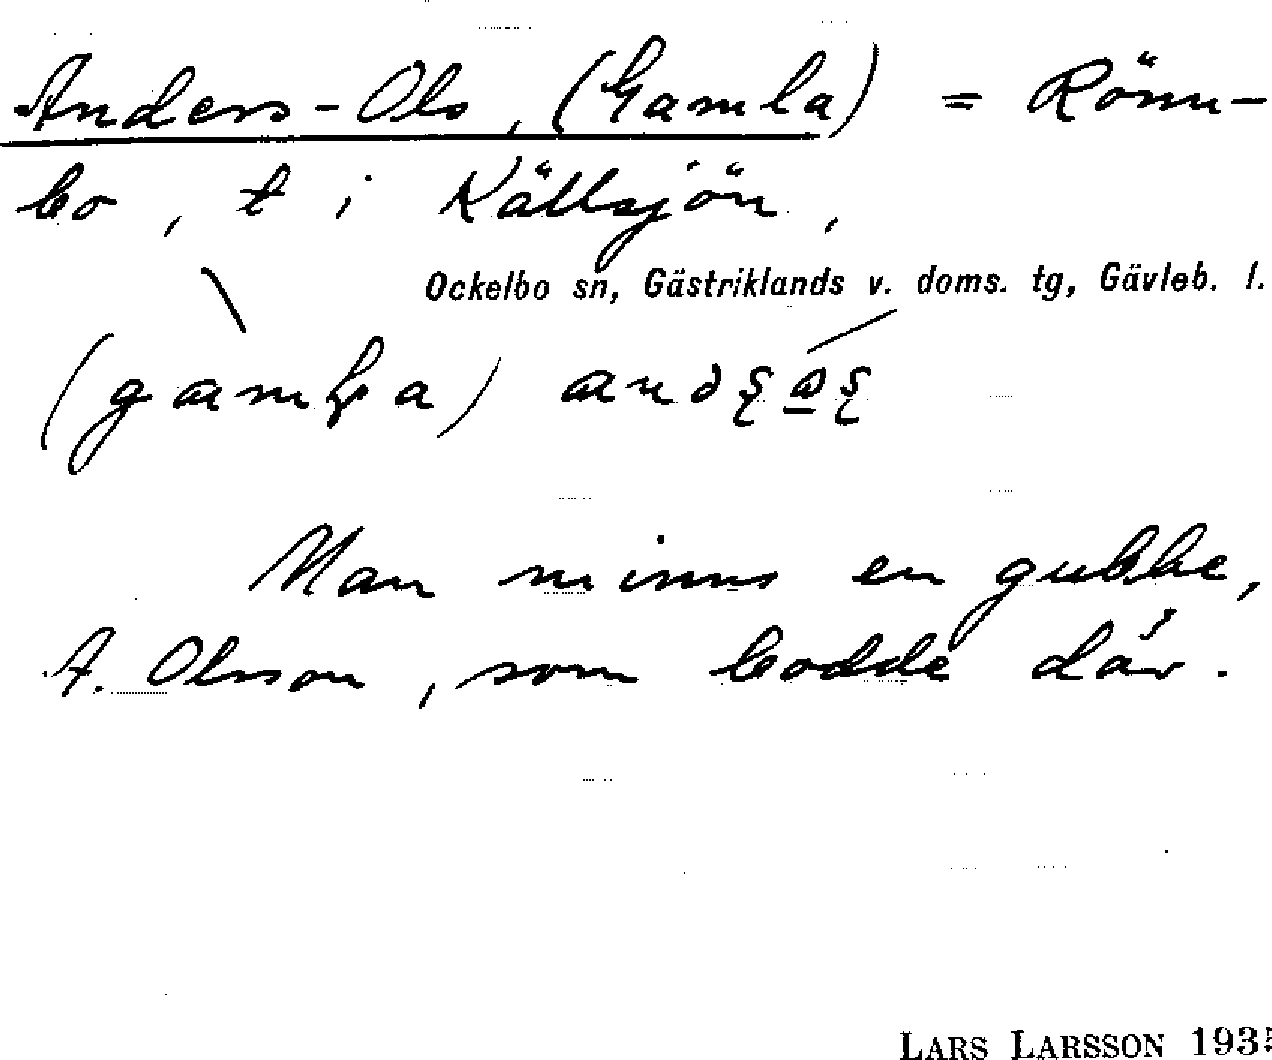 Anders-Ols, (Gamla) = Rönn-
bo, t i Källsjön,
Ockelbo sn, Gästriklands v. doms. tg, Gävleb. l.
Man minns en gubbe,
A. Olsson, som bodde där.
LARS LARSSON 1935